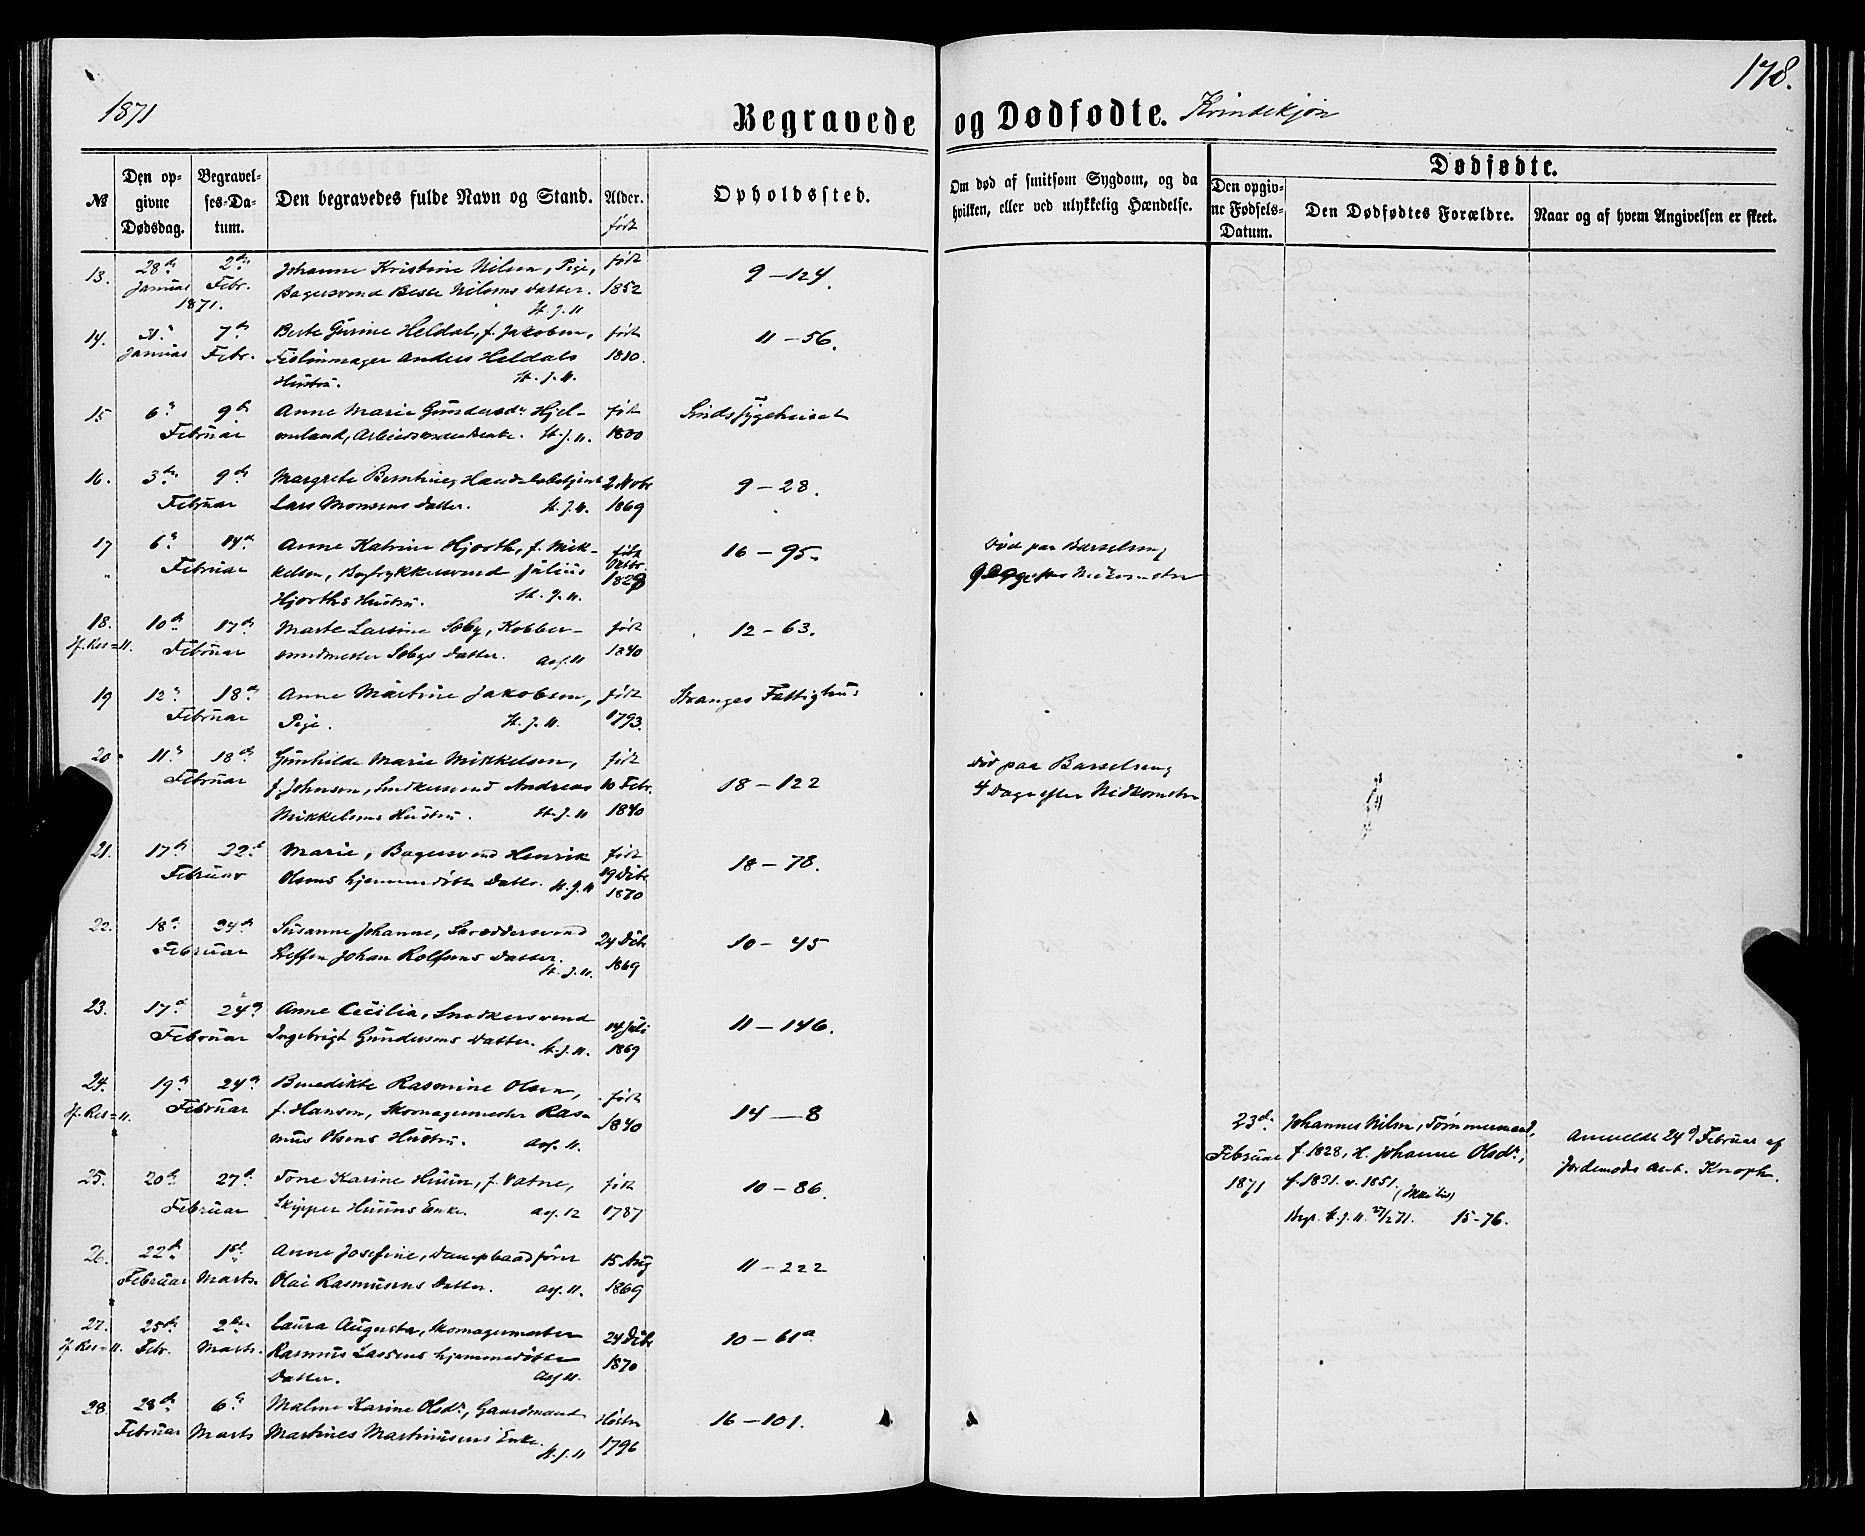 178.
1871
Begravede og Dødfødte. Kvindekjøn
№
Den opgivne Dødsdag.
Begravelses-Datum.
Den begravedes fulde Navn og Stand.
Alder.
født
Opholdssted.
Om død af smitsom Sygdom, og da
hvilken, eller ved ulykkelig Hændelse.
Dødfødte.
Den opgivne Fødsels-Datum.
Den Dødfødtes Forældre.
Naar og af hvem Angivelsen er skeet.
13. 28de 2den Johanne Kristine Nilsen, Pige, født 9 – 124.
Januar Febr. Bagersvend Beste Nilsens Datter. 1852
1871. St. J. 11
14. 31te 7de Berte Gurine Heldal, f. Jakobsen, født 11 – 56.
Januar Febr. Anders Heldals 1810.
Hustru. St. J. 11.
15 6te 9de Anne Marie Gundersdr Hjel- født Sindssygehuset
Februar meland, Arbeidsmands Enke. St. J. 11. 1800
16. 3die 9de Margrete Berntine, Handelsbetjent 2 Novbr 9 – 28.
Februar Lars Monsens Datter. St. J. 11. 1869
17 6te 14de Anne Katrine Hjorth, f. Mik- født 16 – 95. Død paa Barselseng
Februar kelsen, Bogtrykkersvend Julius Octbr. 1828 9 Dage efter Nedkomsten
Hjorths Hustru. St. J. 11.
18. 10de 17de Marte Larsine Søby, Kobber- født 12 – 63.
Februar smedmester Søbys Datter. Asf. 11 1840
19 12te 18de Anne Martine Jakobsen, født Stranges Fattighus
Februar Pige. St. J. 11. 1793.
20 11te 18de Gunhilde Marie Mikkelsen, født 18 – 122 Død paa Barselseng
Februar f. Johnsen, Snedkersvend Andreas 10 Febr. 4 Dage efter Nedkomsten
Mikkelsens Hustru. St. J. 11 1840
21. 17de 22de Marie, Bagersvend Henrik født 18 – 78.
Februar Olsens hjemmedøbte Datter. St. J. 11 19 Dcbr 1870
22. 18de 24de Susanne Johanne, Skræddersvend 24 Dcbr 10 – 45
Februar Steffen Johan Rolfsens Datter. St. J. 11. 1869
23. 17de 24de Anne Cecilia, Snedkersvend 14 Juli 11 – 146.
Februar Ingebrigt Gundersens Datter. St. J. 11. 1869
24. 19de 24de Benedikte Rasmine Olsen, født 14 – 8
Februar f. Hansen, Skomagermester Ras- 1840
mus Olsens Hustru. Asf. 11.
23de Johannes Nilsen, Tømmermand, Anmeldt 24de Februar af
Februar f. 1828, H. Johanne Olsdr, Jordemoder Knoph.
1871 f. 1831. v. 1851.
Begr. St. J. 11. 27/2 71. 15 – 76.
25. 20de 27de Tone Karine Huun, f. Vatne, født 10 – 86.
Februar Skipper Huuns Enke. Asf. 12 1787
26. 22de 1ste Anne Josefine, Dampbaadfører 15 Aug 11 – 222
Februar Marts. Olai Rasmussens Datter. Asf. 11. 1869
27. 25de 2den Laura Augusta, Skomagermester 24 Dcbr 10 – 61a
Febr. Marts. Rasmus Larsens hjemmedøbte 1870
Datter. Asf 11.
28 28de 6te Malene Karine Olsdr, Gaardmand Høsten 16 – 101.
Februar Marts Martines Martinusens Enke. St. J. 11 1796